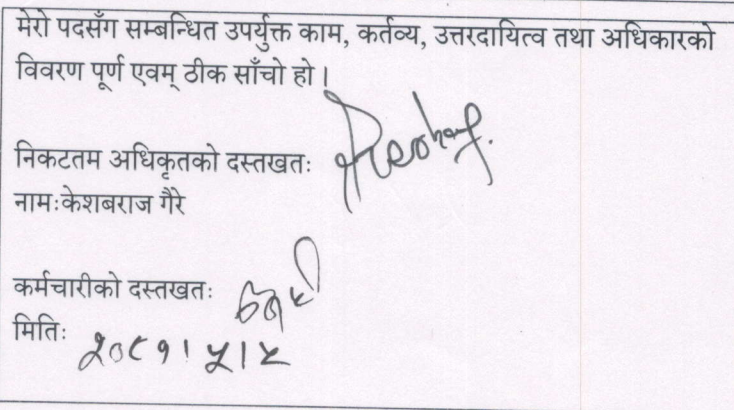 मेरो पदसँग सम्बन्धित उपर्युक्त काम, कर्तव्य, उत्तरदायित्व तथा अधिकारको
विवरण पूर्ण एवम् ठीक साँचो हो।
निकटतम अधिकृतको दस्तखतः
नामःकेशबराज गैरे
कर्मचारीको दस्तखतः
मितिः २०८१।५।५